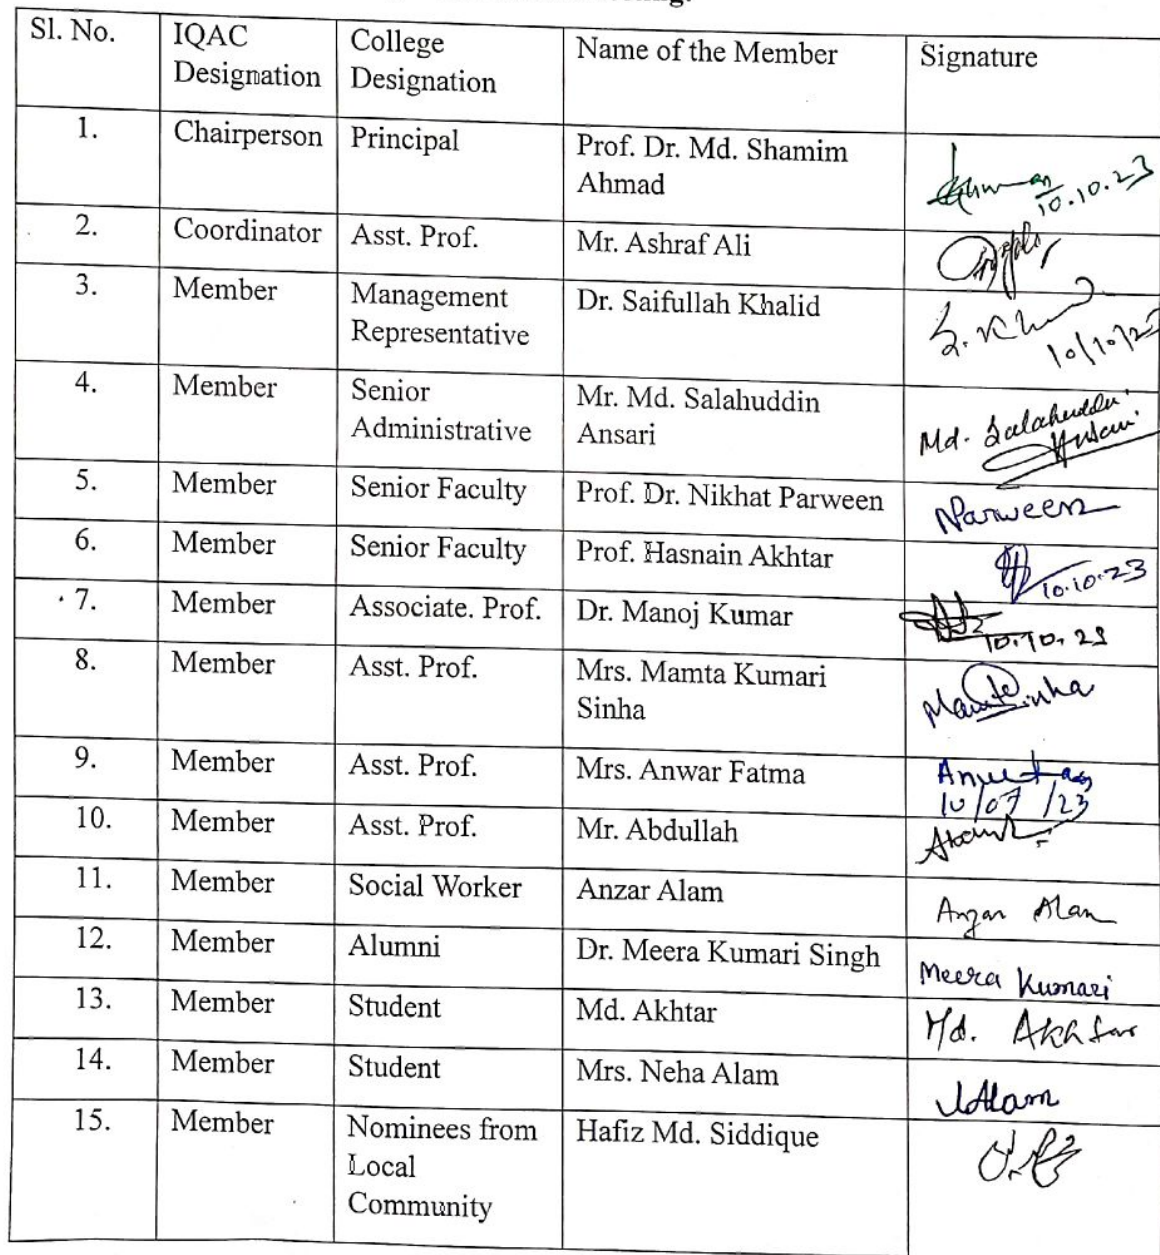 Sl. No. IQAC Designation College Designation Name of the Member Signature
1. Chairperson Principal Prof. Dr. Md. Shamim Ahmad 10.10.23
2. Coordinator Asst. Prof. Mr. Ashraf Ali
3. Member Management Representative Dr. Saifullah Khalid 10/10/23
4. Member Senior Administrative Mr. Md. Salahuddin Ansari Md. Salahuddin Ansari
5. Member Senior Faculty Prof. Dr. Nikhat Parween NParween
6. Member Senior Faculty Prof. Hasnain Akhtar 10.10.23
7. Member Associate. Prof. Dr. Manoj Kumar 10.10.23
8. Member Asst. Prof. Mrs. Mamta Kumari Sinha Mamta Sinha
9. Member Asst. Prof. Mrs. Anwar Fatma 10/07/23
10. Member Asst. Prof. Mr. Abdullah
11. Member Social Worker Anzar Alam Anzar Alam
12. Member Alumni Dr. Meera Kumari Singh Meera Kumari
13. Member Student Md. Akhtar Md. Akhtar
14. Member Student Mrs. Neha Alam NAlam
15. Member Nominees from Local Community Hafiz Md. Siddique